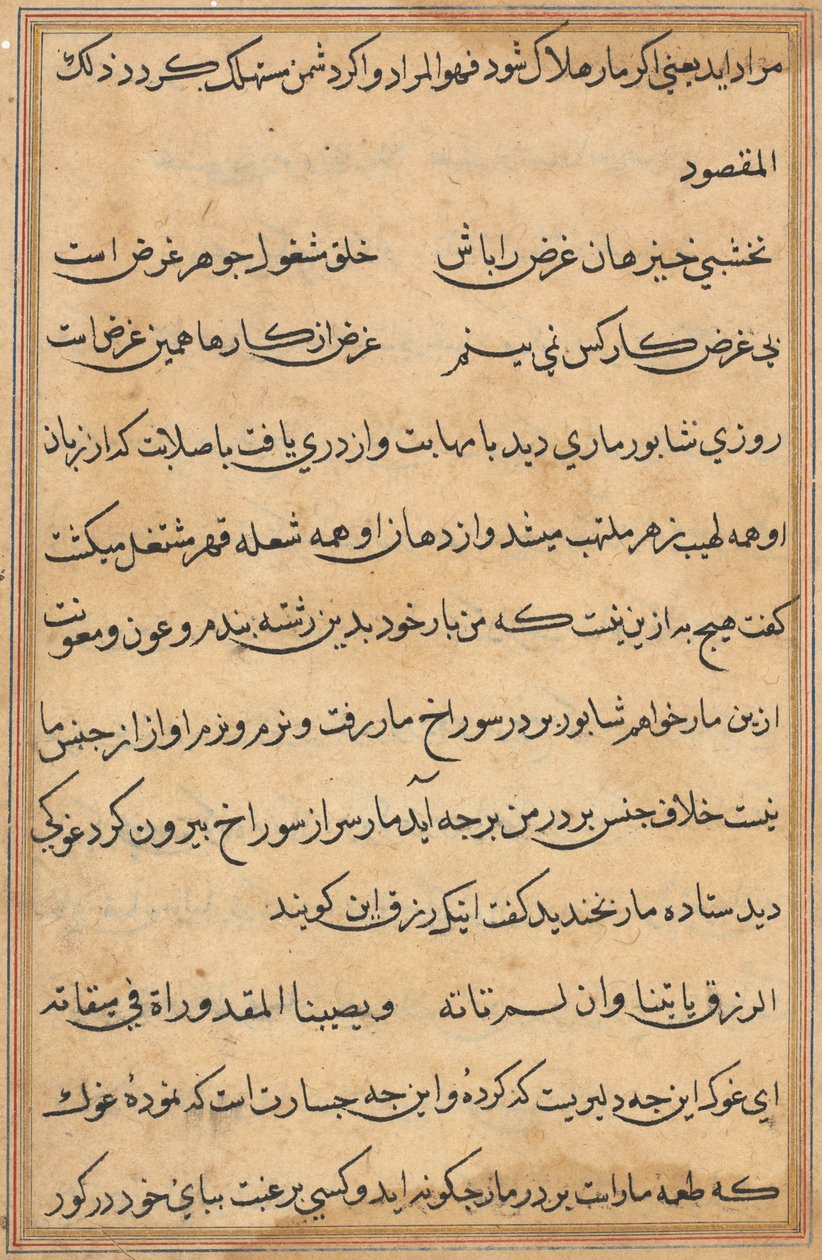 مراد اید یعنی اکر مار هلاک شود فهو المراد و اکر دشمن مستهلک کردد ذلک
المقصود
نخشبی خیز هان غرض را باش خلق مشغول جوهر غرض است
بی غرض کار کس نمی بینم غرض از کارها همین غرض است
روزی شابور ماری دید با مهابت و ازدری یافت با صلابت که از زبان
او همه لهیب زهر ملتهب میشد و از دهان او همه شعله قهر مشتغل میکشت
کفت هیچ به ازین نیست که من بار خود بدین رشته بندم و عون و معونت
ازین مار خواهم شابور بر در سوراخ مار رفت و نرم و نرم اواز از جنس ما
نیست خلاف جنس بر در من برجه آید مار سر از سوراخ بیرون کرد غوکی
دید ستاده مار بخندید کفت اینک رزق این کویند
الرزق یاتینا وان لم تاته ویصیبنا المقدوراة فی میقاته
ای غوک این جه دلیریست که کردۀ و این جه جسارت است که نمودۀ غوک
که طعمه مار است بر در مار جکونه اید و کسی برغبت بپای خود در کور